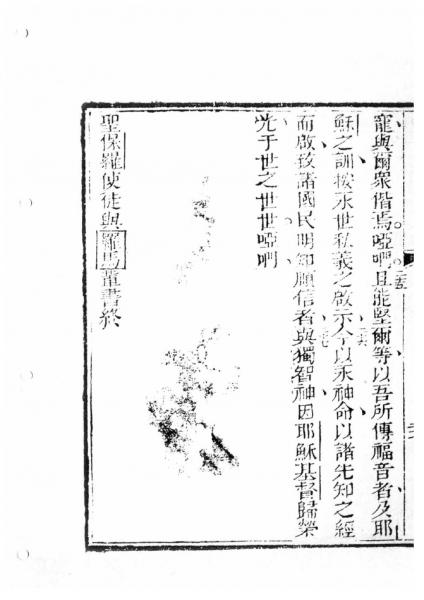 寵與爾眾偕焉。啞啊。二五且能堅爾等以吾所傳福音者及耶
穌之訓、按永世私義之啟示、二六今以永神命以諸先知之經
而啟致諸國民明知願信者、二七與獨智神、因耶穌基督歸榮
光于世之世世。啞啊
聖保羅使徒與羅馬輩書終